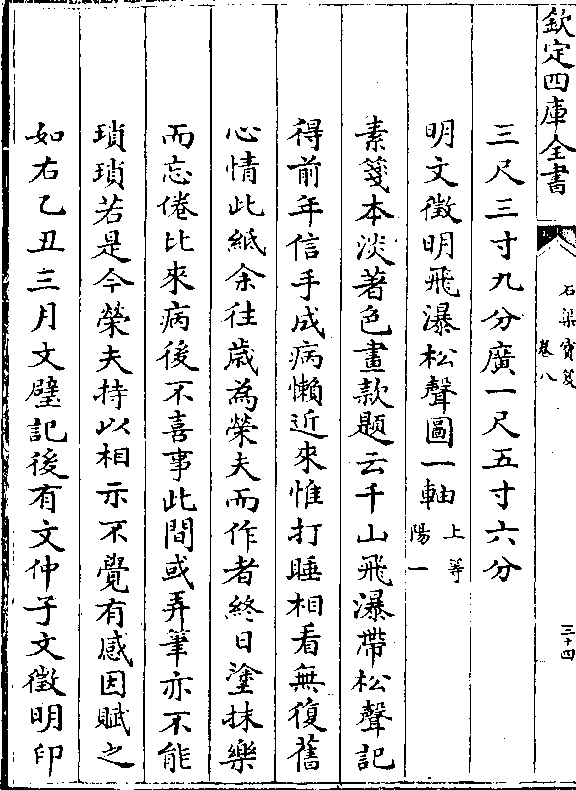 欽定四庫全書
石渠寶笈
卷八
三十四
三尺三寸九分廣一尺五寸六分
明文徵明飛瀑松聲圖一軸上等
陽一
素箋本淡著色畫款題云千山飛瀑帶松聲記
得前年信手成病懶近來惟打睡相看無復舊
心情此紙余往歲為榮夫而作者終日塗抹樂
而忘倦比來病後不喜事此間或弄筆亦不能
瑣瑣若是今榮夫持以相示不覺有感因賦之
如右乙丑三月文璧記後有文仲子文徵明印